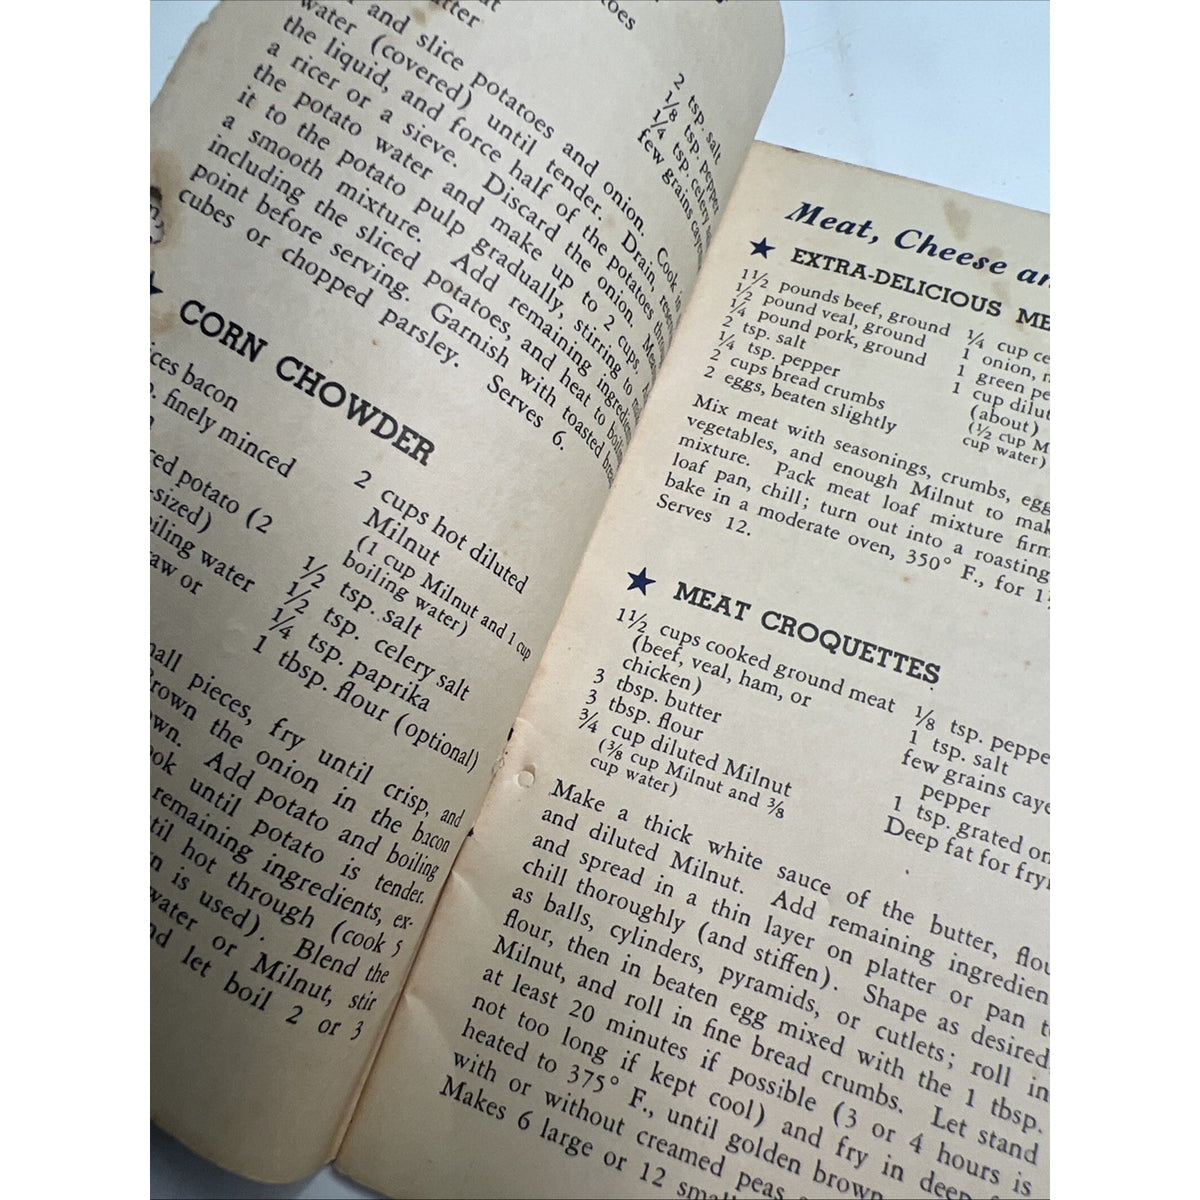 2 tsp. salt
1/8 tsp. pepper
1/4 tsp. celery
few grains
and slice potatoes and onion. Cook in
water (covered) until tender. Drain,
the liquid, and force half of the potatoes
a ricer or a sieve. Discard the onion.
the potato water and make up to 2 cups.
it to the potato pulp gradually, stirring to
a smooth mixture. Add remaining
including the sliced potatoes, and heat to
point before serving. Garnish with toasted
cubes or chopped parsley. Serves 6.
CORN CHOWDER
bacon
finely minced
potato (2
boiling water
or
2 cups hot diluted
Milnut
(1 cup Milnut and 1 cup
boiling water)
1/2 tsp. salt
1/2 tsp. celery salt
1/4 tsp. paprika
1 tbsp. flour (optional)
pieces, fry until crisp, and
the onion in the bacon
Add potato and boiling
until potato is tender.
remaining ingredients, ex-
hot through (cook 5
is used). Blend the
water or Milnut, stir
let boil 2 or 3
Meat, Cheese
EXTRA-DELICIOUS
1½ pounds beef, ground
½ pound veal, ground
½ pound pork, ground
2 tsp. salt
¼ tsp. pepper
2 cups bread crumbs
2 eggs, beaten slightly
¼ cup
1 onion,
1 green
1 cup
(about)
(½ cup
cup water)
Mix meat with seasonings, crumbs,
vegetables, and enough Milnut to
mixture. Pack meat loaf mixture
loaf pan, chill; turn out into a roasting
bake in a moderate oven, 350° F., for
Serves 12.
MEAT CROQUETTES
1½ cups cooked ground meat
(beef, veal, ham, or
chicken)
3 tbsp. butter
3 tbsp. flour
¾ cup diluted Milnut
(⅜ cup Milnut and ⅜
cup water)
⅛ tsp.
1 tsp. salt
few grains
pepper
1 tsp. grated
Deep fat for
Make a thick white sauce of the butter,
and diluted Milnut. Add remaining
and spread in a thin layer on platter or pan
chill thoroughly (and stiffen). Shape as desired,
as balls, cylinders, pyramids, or cutlets; roll in
flour, then in beaten egg mixed with the 1 tbsp.
Milnut, and roll in fine bread crumbs. Let stand
at least 20 minutes if possible (3 or 4 hours is
not too long if kept cool) and fry in
heated to 375° F., until golden
with or without creamed peas
Makes 6 large or 12